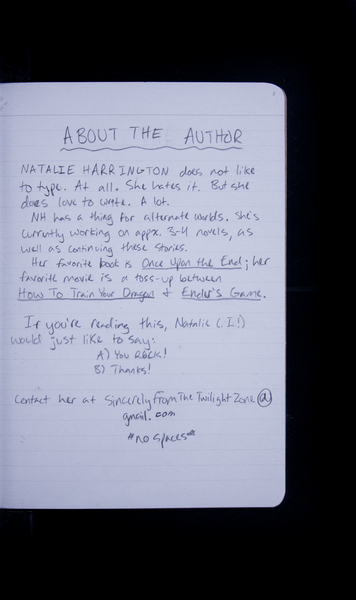 ABOUT THE AUTHOR
NATALIE HARRINGTON does not like
to type. At all. She hates it. But she
does love to write. A lot.
NH has a thing for alternate worlds. She's
currently working on appx. 3-4 novels, as
well as continuing these stories.
Her favorite book is Once Upon the End; her
favorite movie is a toss-up between
How To Train Your Dragon & Ender's Game.
If you're reading this, Natalie (I!)
would just like to say:
A) You Rock!
B) Thanks!
Contact her at SincerelyFromTheTwilightZone@
gmail.com
*no spaces*